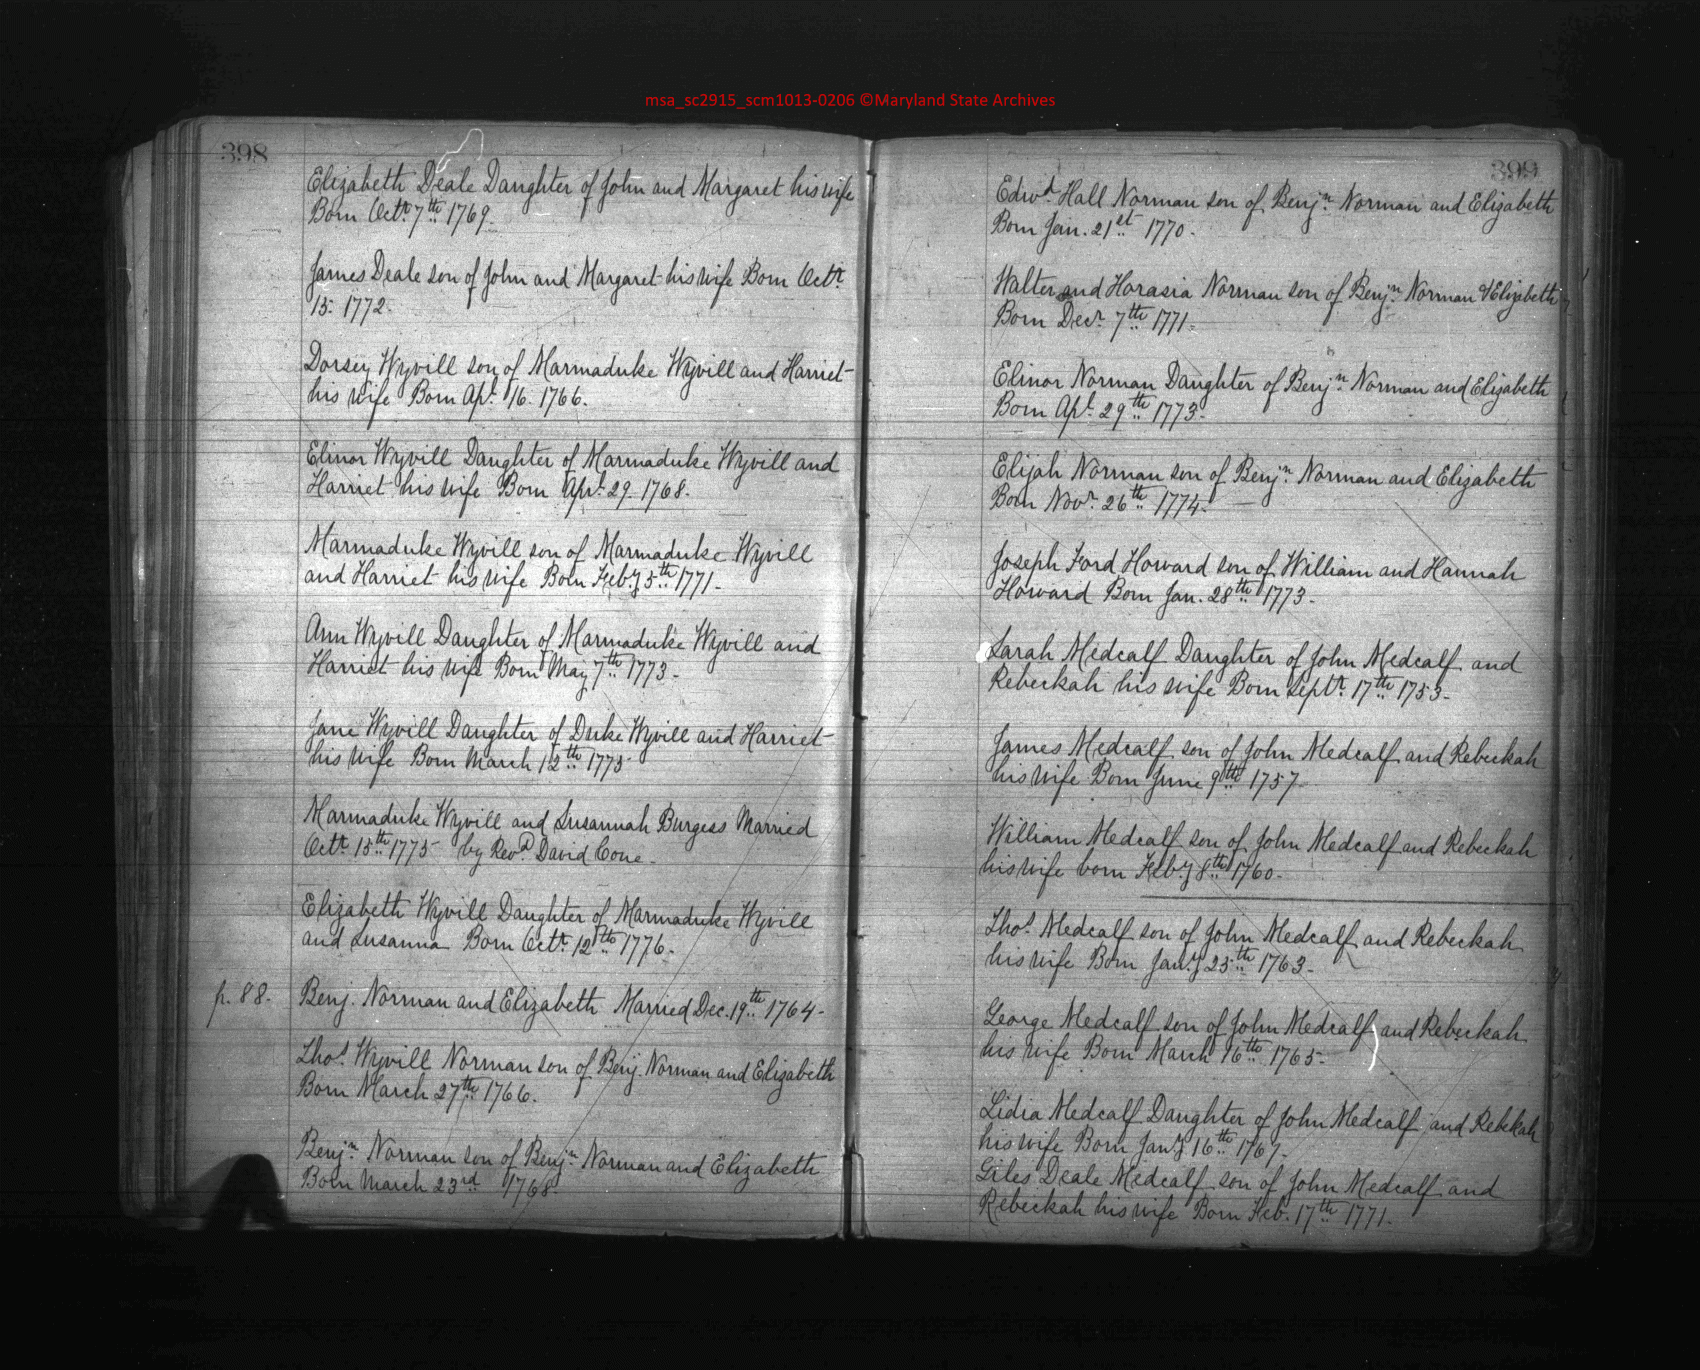 msa_sc2915_scm1013-0206 ©Maryland State Archives
398
Elizabeth Deale Daughter of John and Margaret his wife
Born Octr. 7th 1769.
James Deale son of John and Margaret his wife Born Octr.
15. 1772.
Dorsey Wyvill son of Marmaduke Wyvill and Harriet
his wife Born Apl. 16. 1766.
Elinor Wyvill Daughter of Marmaduke Wyvill and
Harriet his wife Born Apl. 29. 1768.
Marmaduke Wyvill son of Marmaduke Wyvill
and Harriet his wife Born Feby 5th 1771.
Ann Wyvill Daughter of Marmaduke Wyvill and
Harriet his wife Born May 7th 1773.
Jane Wyvill Daughter of Duke Wyvill and Harriet
his wife Born March 12th 1775
Marmaduke Wyvill and Susannah Burgess Married
Octr. 15th 1775 by Revd. David Cone.
Elizabeth Wyvill Daughter of Marmaduke Wyvill
and Susanna Born Octr. 12th 1776.
p. 88. Benj. Norman and Elizabeth Married Dec. 19th 1764.
Thos. Wyvill Norman son of Benj. Norman and Elizabeth
Born March 27th 1766.
Benjn. Norman son of Benjn. Norman and Elizabeth
Born March 23rd 1768.
399
Edwd. Hall Norman son of Benjn. Norman and Elizabeth
Born Jan. 21st 1770.
Walter and Horasia Norman son of Benjn. Norman & Elizabeth
Born Decr. 7th 1771.
Elinor Norman Daughter of Benjn. Norman and Elizabeth
Born Apl. 29th 1773.
Elijah Norman son of Benjn. Norman and Elizabeth
Born Novr. 26th 1774.
Joseph Ford Howard son of William and Hannah
Howard Born Jan. 28th 1773.
Sarah Medcalf Daughter of John Medcalf and
Rebeckah his wife Born Septr. 17th 1753.
James Medcalf son of John Medcalf and Rebeckah
his wife Born June 9th 1757
William Medcalf son of John Medcalf and Rebeckah
his wife born Feby 8th 1760.
Thos. Medcalf son of John Medcalf and Rebeckah
his wife Born Jany 23th 1763.
George Medcalf son of John Medcalf and Rebeckah
his wife Born March 16th 1765.
Lidia Medcalf Daughter of John Medcalf and Rebekah
his wife Born Jany 16th 1767.
Giles Deale Medcalf son of John Medcalf and
Rebeckah his wife Born Feb. 17th 1771.